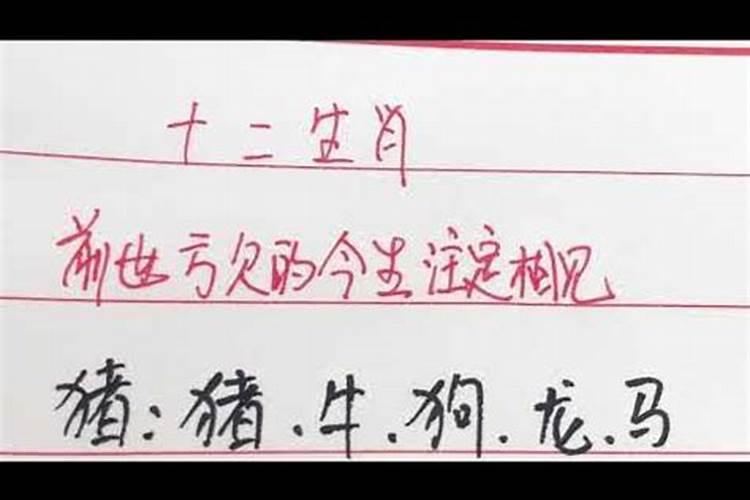 十二生肖
前世亏欠的今生注定相见
猪：猪.牛.狗.龙.马